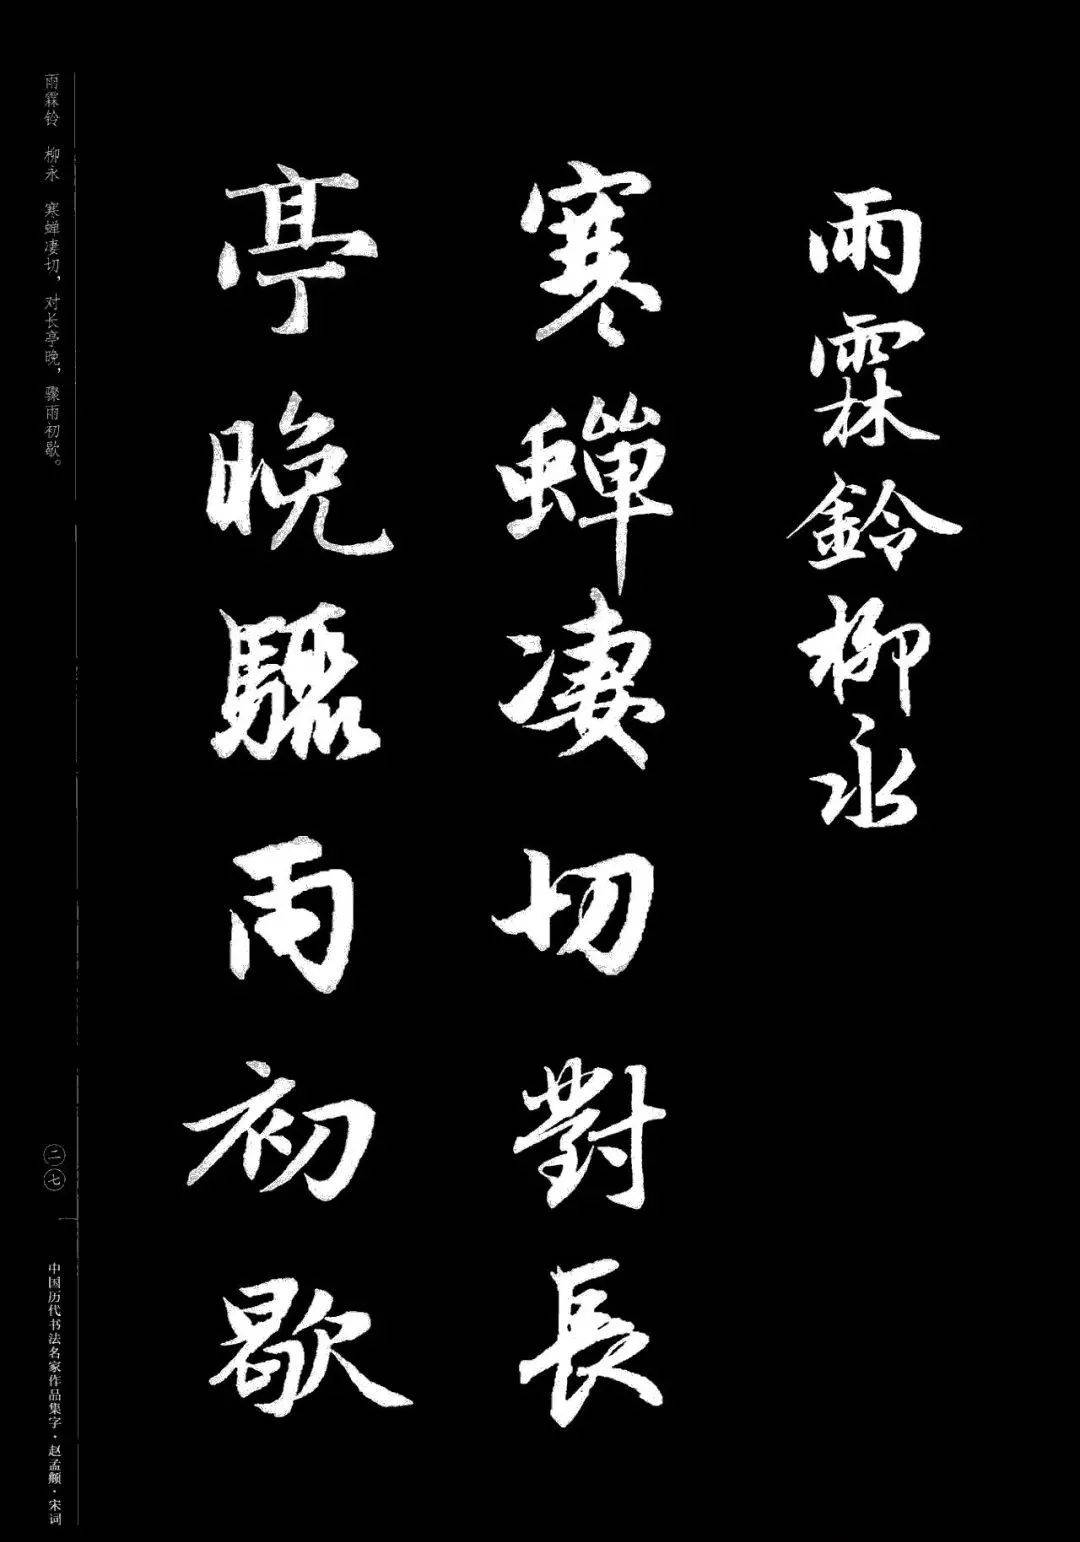 雨霖鈴柳永
寒蟬凄切對長
亭晚驟雨初歇
雨霖铃 柳永 寒蝉凄切，对长亭晚，骤雨初歇。
二七
中国历代书法名家作品集字·赵孟頫·宋词